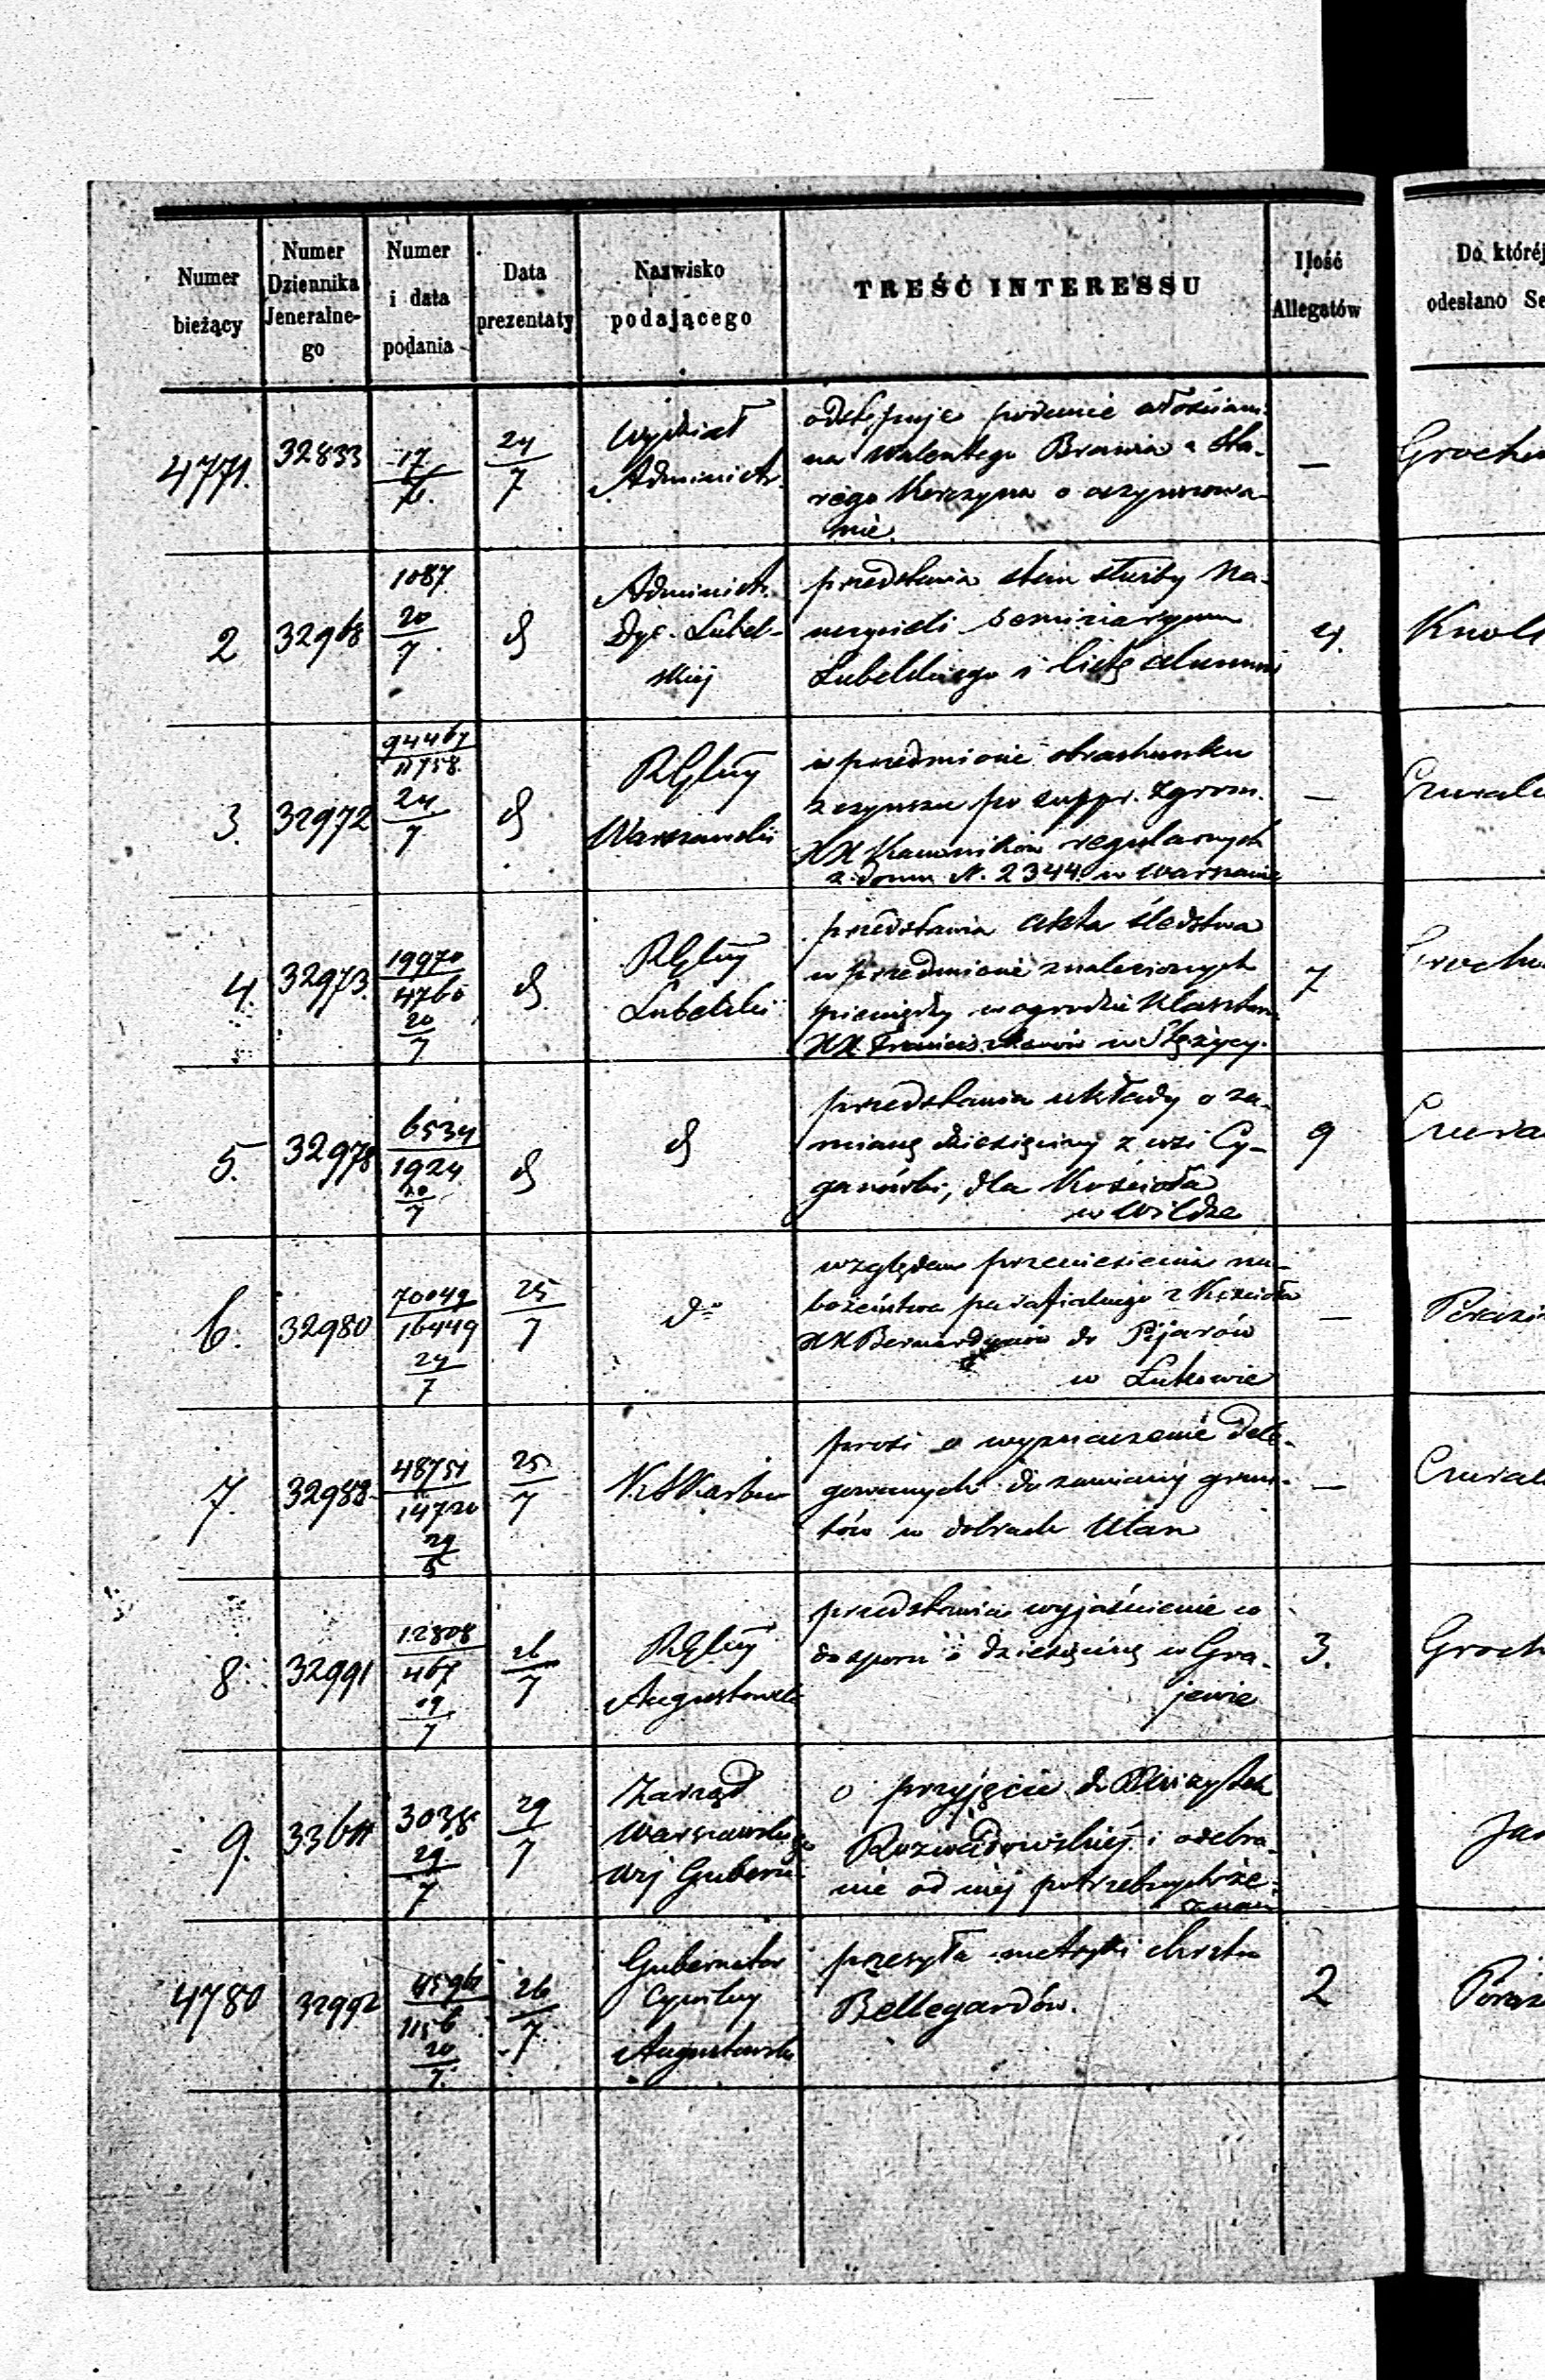 Numer bieżący
Numer Dziennika Jeneralne-go
Numer i data podania
Data prezentaty
Nazwisko podającego
TREŚĆ INTERESSU
Ilość Allegatów
Do któréj
odesłano Se
4771.
32833
17
24
7
Wydział
Administr.
odstępuje podanie włościani-
na Walentego z Sta-
rego Korczyna o oczynszowa-
nie.
—
2
32968
1087.
20
7
Administr.
Dyc. Lubel-
skiej
przedstawia stan służby Na-
uczycieli Seminaryum
Lubelskiego i listę alumnów
4.
3.
32972
94467
11758.
24
7
RGlny
Warszawski
w przedmiocie obrachunku
z czynszu po suppr. Zgrom.
XX Kanoników regularnych
z domu N. 2344. w Warszawie
—
4.
32973.
19970
4760
20
7
RGlny
Lubelski
przedstawia akta śledztwa
w przedmiocie znalezionych
pieniędzy w ogrodzie Klasztoru
XX. Franciszkanów w Stężycy.
7
5.
32978
6534
1924
20
7
przedstawia układy o za-
mianę dziesięciny z wsi Cy-
ganówki, dla Kościoła
w Wildze
9
6.
32980
70049
16449
24
7
25
7
do
względem przeniesienia na-
bożeństwa parafialnego z Kościoła
XX Bernardynów do Pijarów
w Łukowie
—
7.
32988
48751
14720
29
5
25
7
K.S Karbu
prosi o wyznaczenie Dele-
gowanych do zamiany grun-
tów w dobrach Ulan
—
8.
32991
12808
467
19
7
26
7
RGlny
Augustowski
przedstawia wyjaśnienie co
do sporu o dziesięcinę w Gra-
jewie
3.
9.
33611
3038
29
7
29
7
Zarząd
Warszawsk
Wej Guberni
o przyjęcie do
Rozwadowskiéj i odebra-
nie od niéj potrzebnych ze-
znań
4780
32992
1156
20
7.
26
7
Gubernator
Cywilny
Augustowski
przesyła metryki chrztu
Bellegardów.
2